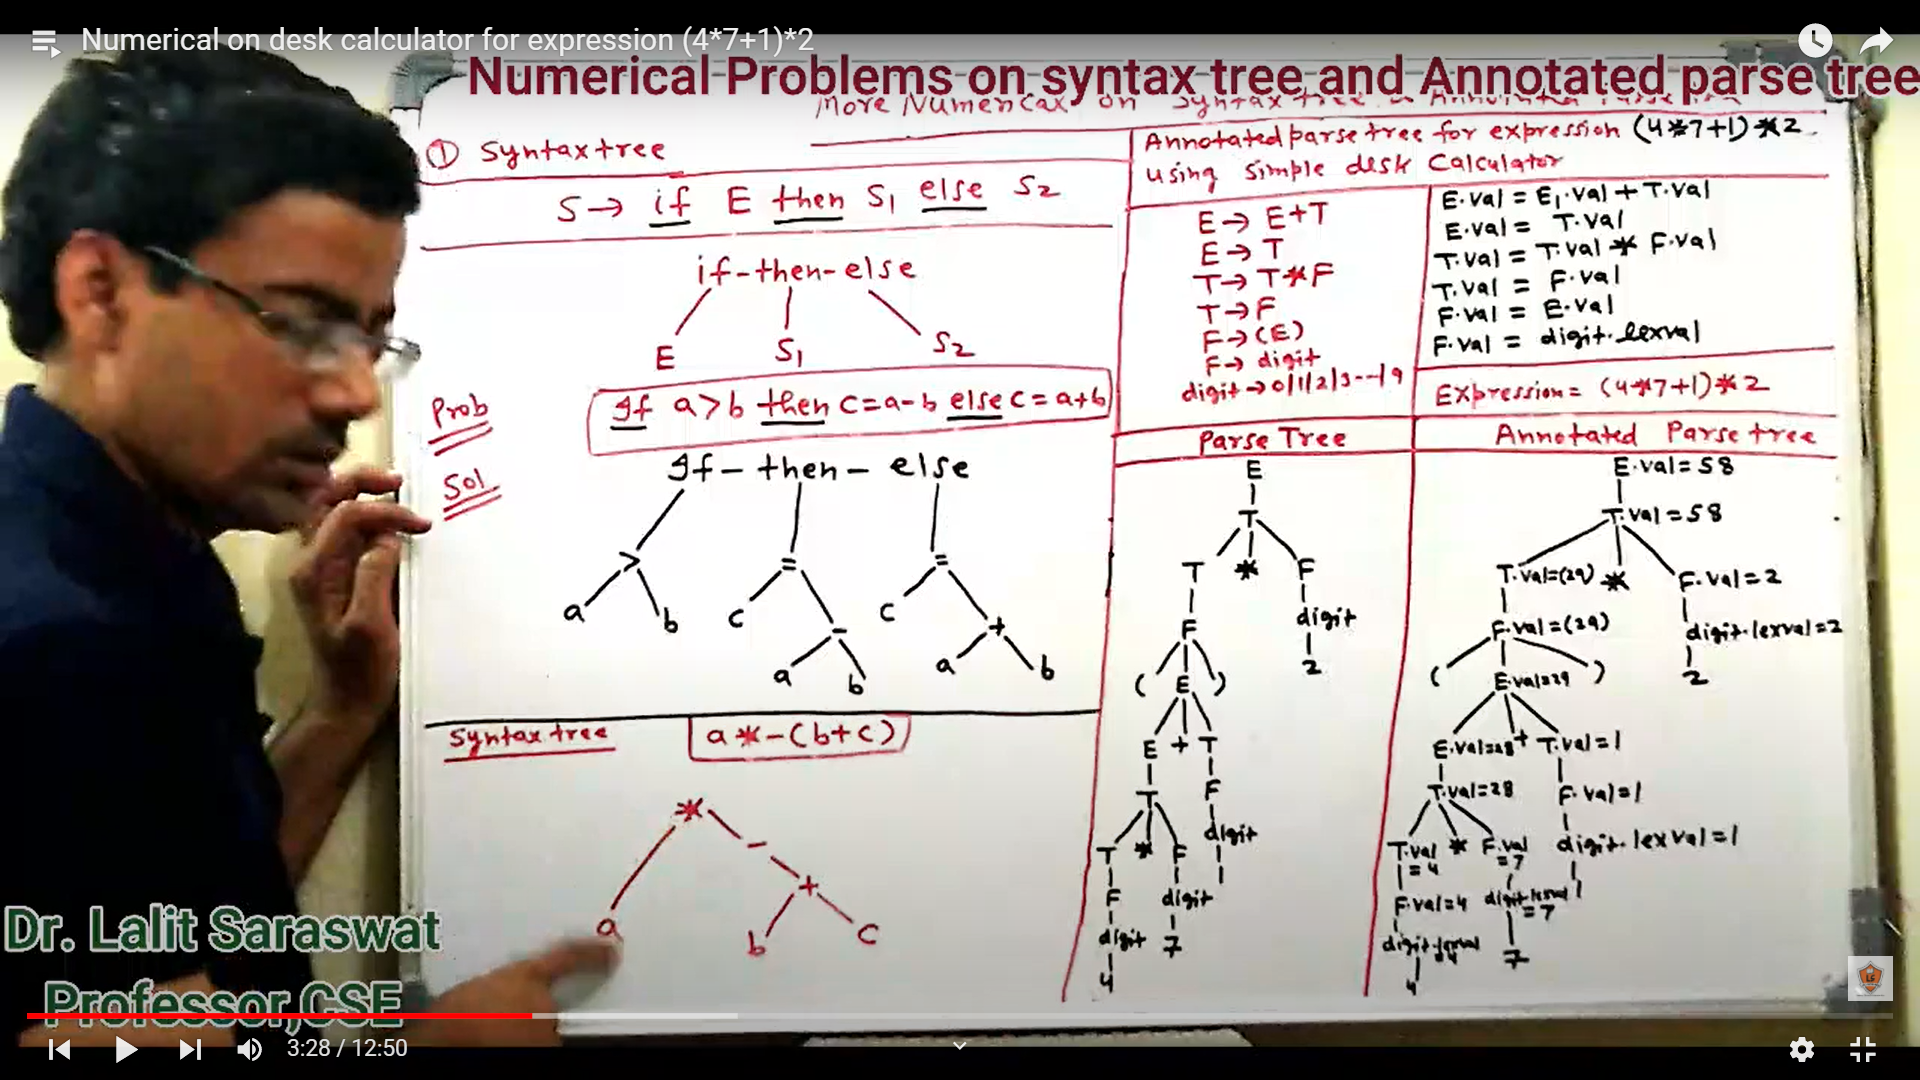 Numerical on desk calculator for expression (4*7+1)*2
Numerical Problems on syntax tree and Annotated parse tree
More Numerical on Syntax tree
① Syntax tree
S → if E then S1 else S2
if-then-else
E S1 S2
Prob
If a>b then c=a-b else c=a+b
Sol
If-then-else
> = =
a b c - c +
a b a b
Syntax tree
a*-(b+c)
*
-
+
a b c
Annotated parse tree for expression (4*7+1)*2
using simple desk Calculator
E → E+T
E → T
T → T*F
T → F
F → (E)
F → digit
digit → 0/1/2/3--/9
E.val = E1.val + T.val
E.val = T.val
T.val = T.val * F.val
T.val = F.val
F.val = E.val
F.val = digit.lexval
Expression = (4*7+1)*2
Parse Tree
E
T
T * F
F digit
( E ) 2
E + T
T F
T * F digit
F digit 1
digit 7
4
Annotated Parse tree
E.val=58
T.val=58
T.val=(29) * F.val=2
F.val=(29) digit.lexval=2
( E.val=29 ) 2
E.val=28 + T.val=1
T.val=28 F.val=1
T.val=4 * F.val=7 digit.lexval=1
F.val=4 digit.lexval=7 1
digit.lexval=4 7
4
Dr. Lalit Saraswat
Professor,CSE
3:28 / 12:50